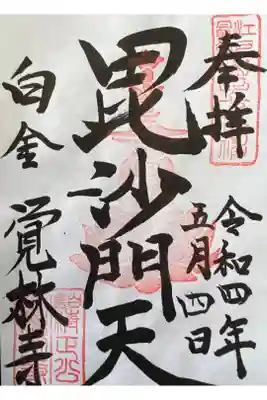 奉拝
令和四年
五月四日
毘沙門天
白金
覚林寺